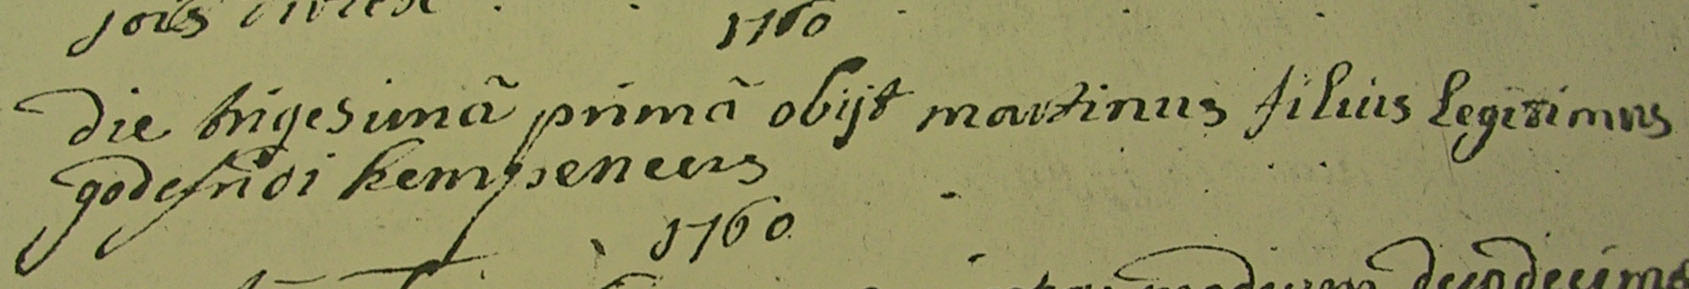 joris
1760
Die trigesimã primã obijt martinus filius Legitimus
godefridi kempeneers
1760
duodecima